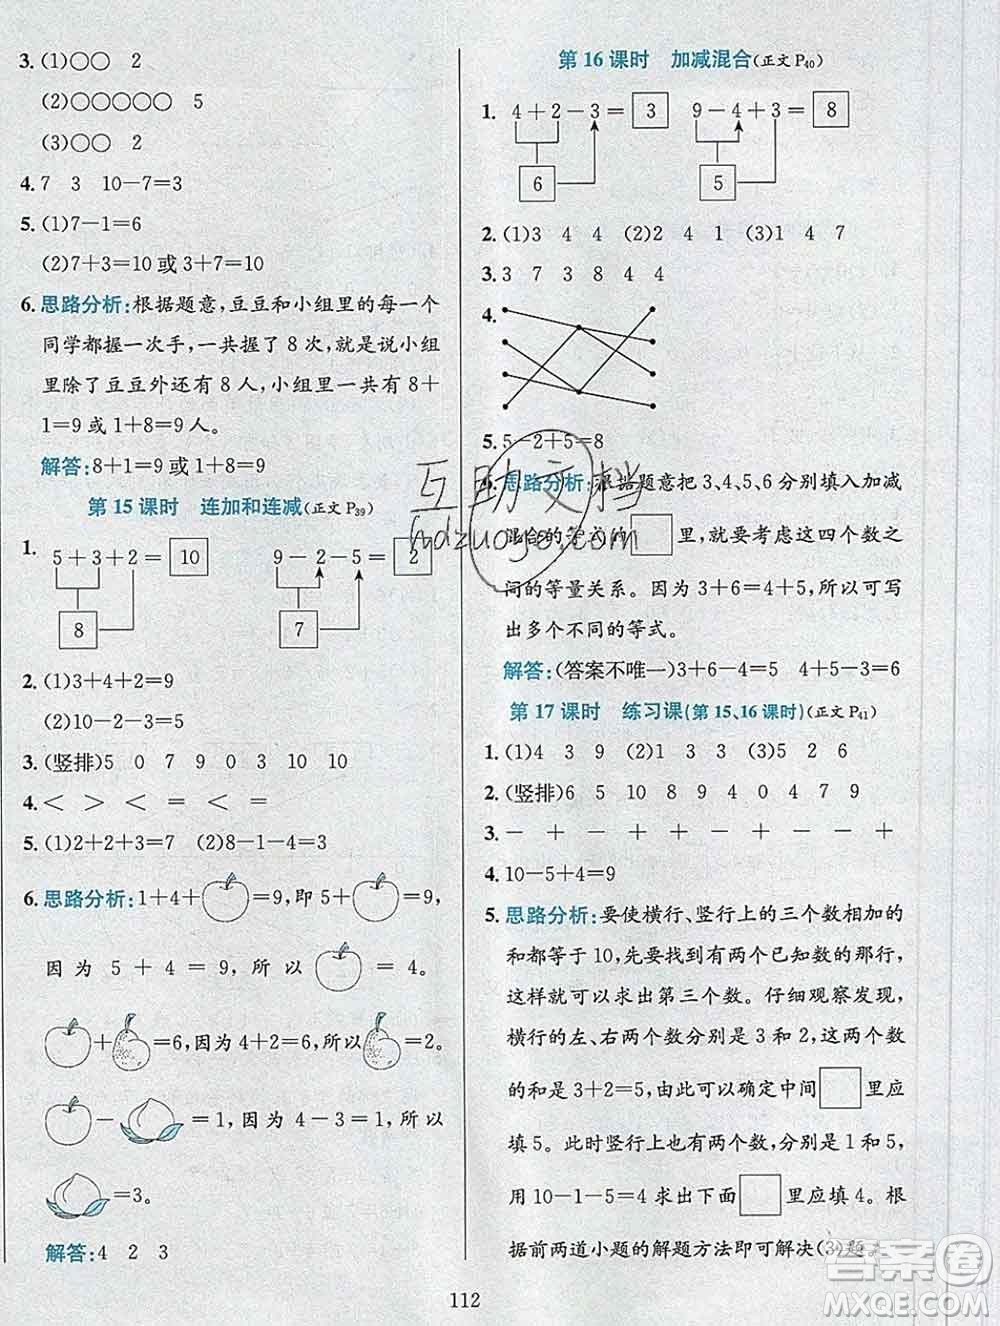 3. (1)○○ 2
(2)○○○○○ 5
(3)○○ 2
4. 7 3 10-7=3
5. (1)7-1=6
(2)7+3=10 或 3+7=10
6. 思路分析:根据题意,豆豆和小组里的每一个
同学都握一次手,一共握了 8 次,就是说小组
里除了豆豆外还有 8 人,小组里一共有 8+
1=9 或 1+8=9 人。
解答:8+1=9 或 1+8=9
第 15 课时 连加和连减(正文 P39)
1. 5+3+2=10 9-2-5=2
8 7
2. (1)3+4+2=9
(2)10-2-3=5
3. (竖排)5 0 7 9 0 3 10 10
4. < > < = < =
5. (1)2+2+3=7 (2)8-1-4=3
6. 思路分析:1+4+ =9,即 5+ =9,
因为 5+4=9,所以 =4。
+ =6,因为 4+2=6,所以 =2。
- =1,因为 4-3=1,所以
=3。
解答:4 2 3
第 16 课时 加减混合(正文 P40)
1. 4+2-3=3 9-4+3=8
6 5
2. (1)3 4 4 (2)2 4 1 (3)1 4 7
3. 3 7 3 8 4 4
4.
5. 5-2+5=8
思路分析:根据题意把 3、4、5、6 分别填入加减
混合的等式的□里,就要考虑这四个数之
间的等量关系。因为 3+6=4+5,所以可写
出多个不同的等式。
解答:(答案不唯一)3+6-4=5 4+5-3=6
第 17 课时 练习课(第 15、16 课时)(正文 P41)
1. (1)4 3 9 (2)1 3 3 (3)5 2 6
2. (竖排)6 5 10 8 9 4 0 4 7 9
3. - + - + + - - +
4. 10-5+4=9
5. 思路分析:要使横行、竖行上的三个数相加的
和都等于 10,先要找到有两个已知数的那行,
这样就可以求出第三个数。仔细观察发现,
横行的左、右两个数分别是 3 和 2,这两个数
的和是 3+2=5,由此可以确定中间□里应
填 5。此时竖行上也有两个数,分别是 1 和 5,
用 10-1-5=4 求出下面□里应填 4。根
据前两道小题的解题方法即可解决(3)题。
112
互助文档
hdzuoye.com
答案圈
MXQE.COM